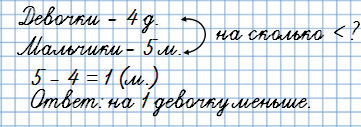 Девочки – 4 д.
на сколько < ?
Мальчики – 5 м.
5 – 4 = 1 (м.)
Ответ: на 1 девочку меньше.